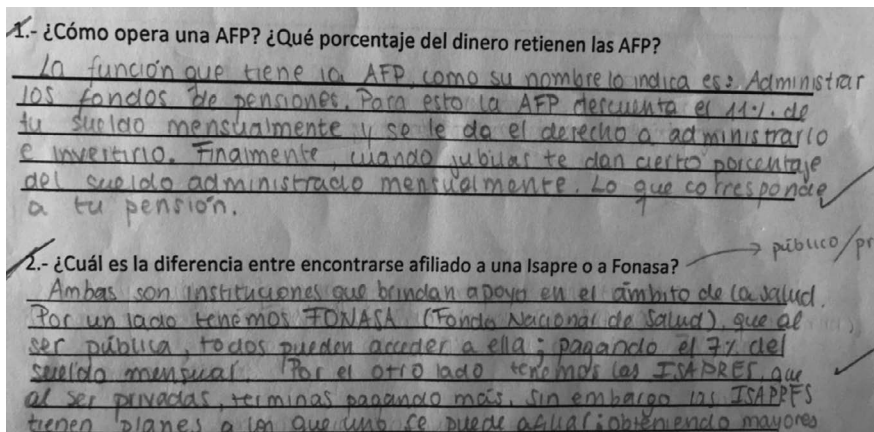 1.- ¿Cómo opera una AFP? ¿Qué porcentaje del dinero retienen las AFP?
La función que tiene la AFP, como su nombre lo indica es: Administrar
los fondos de pensiones. Para esto la AFP descuenta el 11%. de
tu sueldo mensualmente y se le da el derecho a administrarlo
e invertirlo. Finalmente, cuando jubilas te dan cierto porcentaje
del sueldo administrado mensualmente. Lo que corresponde
a tu pensión.
público/pr
2.- ¿Cuál es la diferencia entre encontrarse afiliado a una Isapre o a Fonasa?
Ambas son instituciones que brindan apoyo en el ámbito de la salud.
Por un lado tenemos FONASA (Fondo Nacional de Salud), que al
ser pública, todos pueden acceder a ella; pagando el 7% del
sueldo mensual. Por el otro lado tenemos las ISAPRES, que
al ser privadas, terminas pagando más, sin embargo las ISAPRES
tienen planes a los que uno se puede afiliar; obteniendo mayores